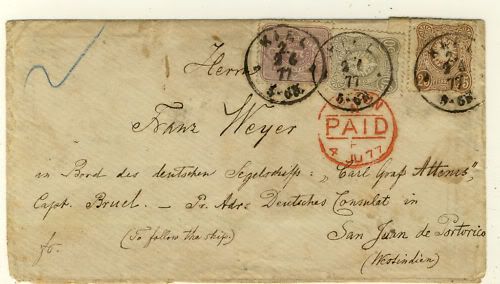 KIEL
2 6
77
5-6N.
KIEL
2 6
77
5-6N.
KIEL
2 6
77
5-6N.
Herrn
PAID
4 JU 77
Franz Weyer
in Bord des deutschen Segelschiffs: „Carl Graf Attems",
Capt. Bruel. - Pr. Adr. Deutsches Consulat in
fo. (To follow the ship.) San Juan de Portorico
(Westindien)